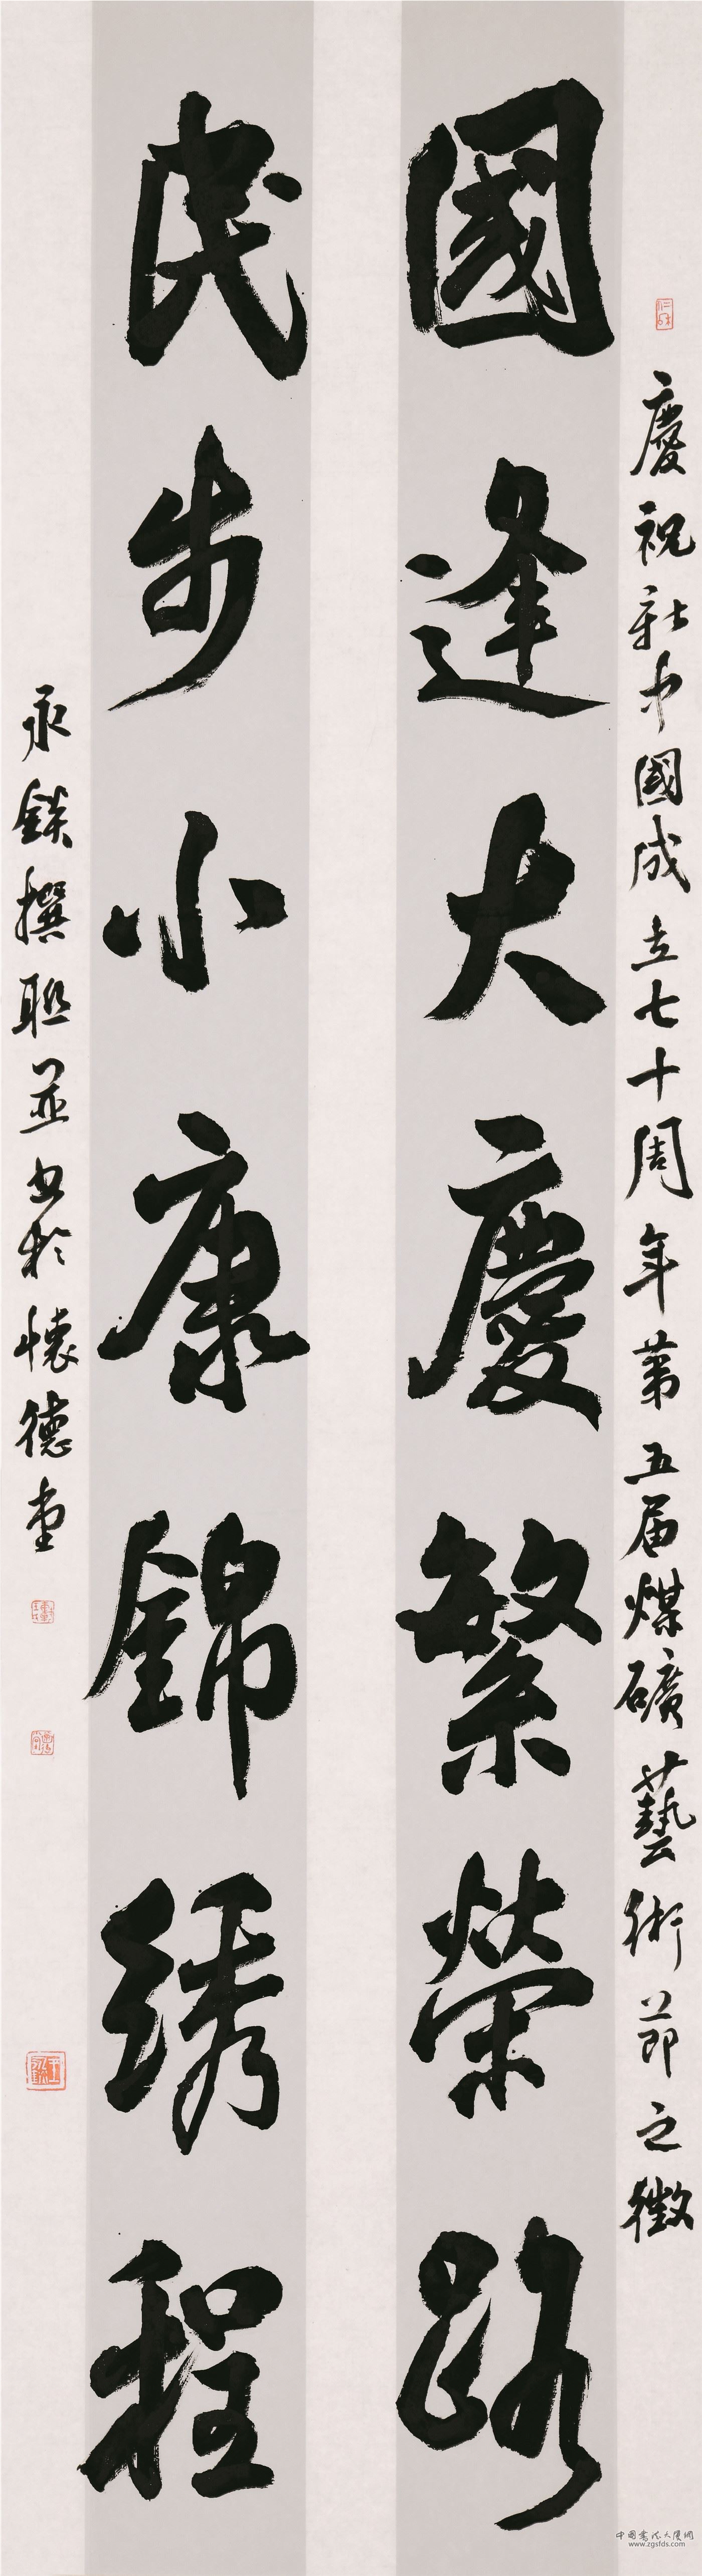 慶祝新中國成立七十周年第五届煤礦藝術節之徵
國逢大慶繁榮路
民步小康錦綉程
永錟撰聯並書於懷德堂
中國書法大厦網
www.zgsfds.com